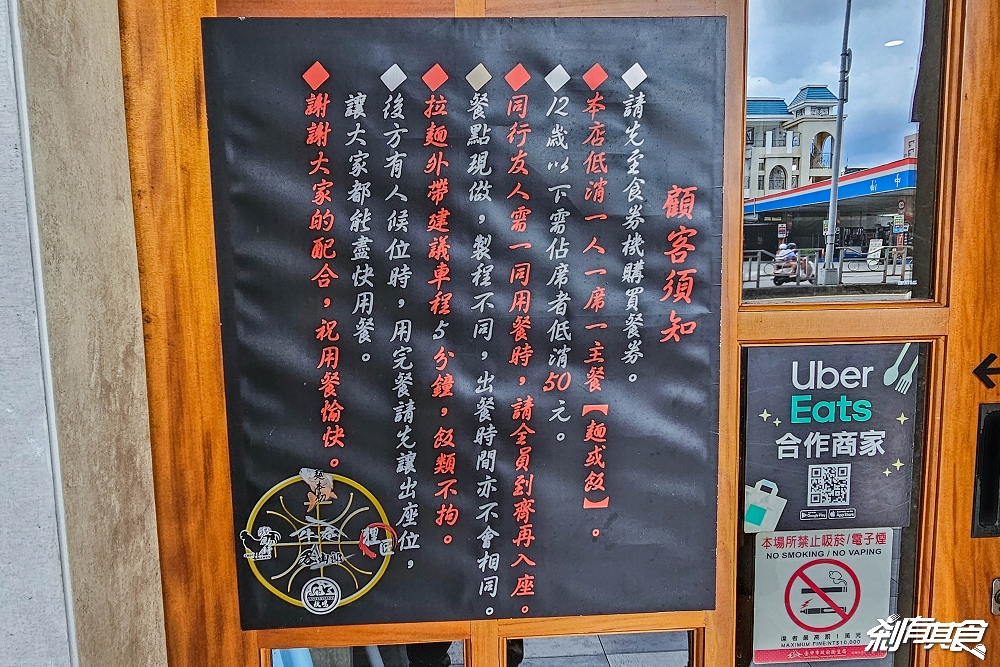 顧客須知
請先至食券機購買餐券。
本店低消一人一席一主餐【麵或飯】。
12歲以下需佔席者低消50元。
同行友人需一同用餐時，請全員到齊再入座。
餐點現做，製程不同，出餐時間亦不會相同。
拉麵外帶建議車程5分鐘，飯類不拘。
後方有人候位時，用完餐請先讓出座位，
讓大家都能盡快用餐。
謝謝大家的配合，祝用餐愉快。
Uber
Eats
合作商家
Google Play
App Store
本場所禁止吸菸/電子煙
NO SMOKING / NO VAPING
違者最高罰1萬元
MAXIMUM FINE NT$10,000
臺中市政府衛生局
剎有其食